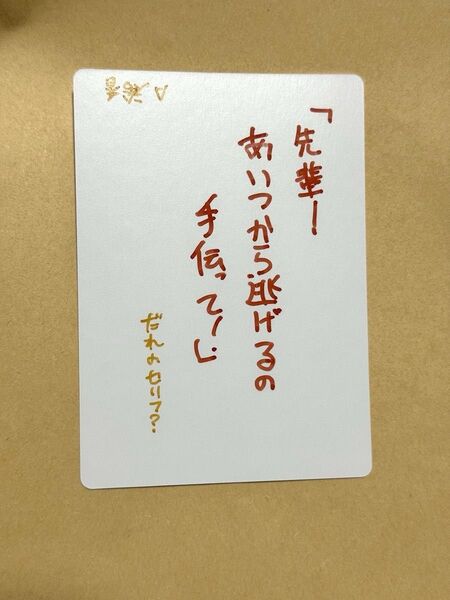 「先輩!
あいつから逃げるの
手伝って!」
だれのセリフ?
A 裕香